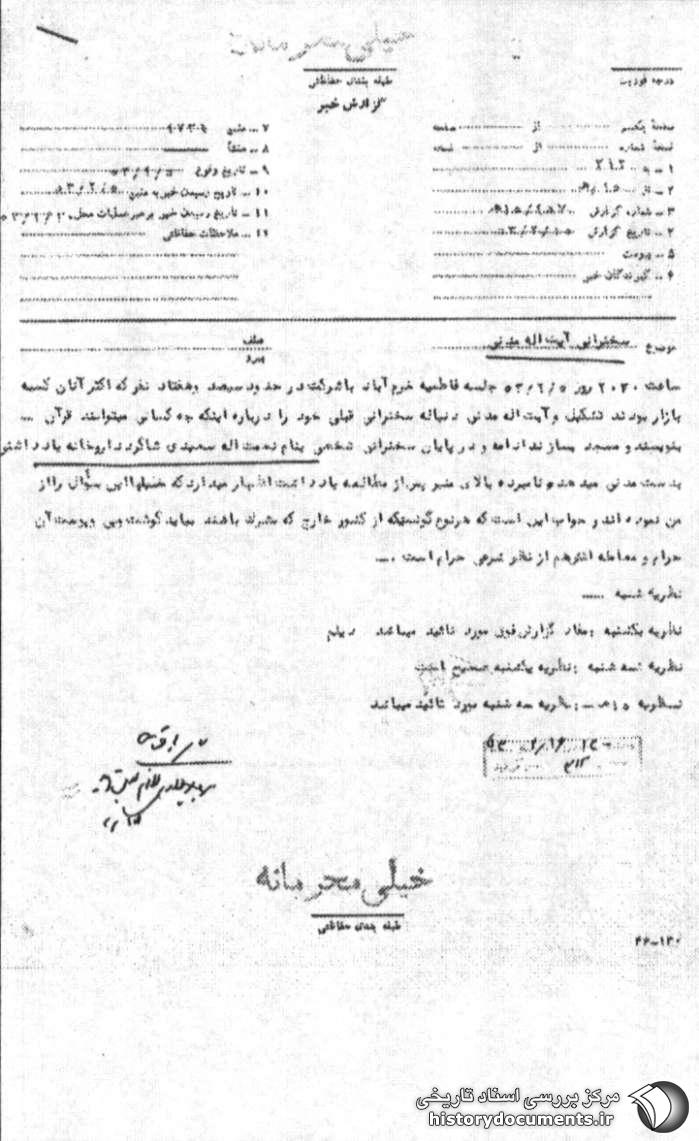 طبقه بندی حفاظتی
درجه فوریت
گزارش خبر
صفحهٔ یکم از صفحه
نسخهٔ شماره از نسخه
۱ – به ۳۱۲
۲ – از
۳ – شماره گزارش
تاریخ گزارش
۵ – پیوست
۶ – گیرندگان خبر
۷ – منبع
۸ – منشأ
۹ – تاریخ وقوع
۱۰ – تاریخ رسیدن خبر به منبع
۱۱ – تاریخ رسیدن خبر به رهبر عملیات محل
ملاحظات حفاظتی
موضوع سخنرانی آیت اله مدنی
عطف
پیرو
ساعت ۲۰۳۰ روز جلسه فاطمیه خرم آباد با شرکت در حدود سیصد وهفتاد نفر که اکثر آنان کسبه
بازار بودند تشکیل و آیت اله مدنی دنباله سخنرانی قبلی خود را درباره اینکه چه کسانی میتوانند قرآن
بنویسند و مسجد بسازند ادامه و در پایان سخنرانی شخصی بنام نعمت اله سعیدی شاگرد داروخانه یادداشتی
بدست مدنی میدهد و نامبرده بالای منبر پس از مطالعه یادداشت اظهار میدارد که خیلیها این سؤال را از
من نموده اند و جواب این است که هر نوع گوشتیکه از کشور خارج که مشرک باشند بیاید گوشت وپی وپوست آن
حرام و معامله اش هم از نظر شرعی حرام است
نظریه شنبه
نظریه یکشنبه : مفاد گزارش فوق مورد تائید میباشد دیلم
نظریه سه شنبه : نظریه یکشنبه صحیح است
نظریه : نظریه سه شنبه مورد تائید میباشد
خیلی محرمانه
طبقه بندی حفاظتی
۴۶-۱۳۰
مرکز بررسی اسناد تاریخی
historydocuments.ir